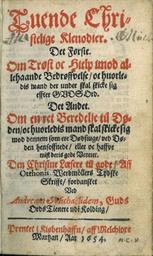 Tuende Chri-
stelige Klenodier.
Det Første.
Om Trøst oc Hielp imod al-
lehaande Bedrøffvelse / oc huorle-
dis mand der under skal skicke sig
effter GUDS Ord.
Det Andet.
Om en ret Beredelse til Dø-
den / oc huorledis mand skal skicke sig
imod dennem som ere Dødsiuge / ved Dø-
den hensoffnede / eller oc haffver
mist deris gode Venner.
Den Christne Læsere til gode / Aff
Otthonis Werdmüllers Tydske
Skriffte / fordansket
Ved
Andream Michaelium, Guds
Ords Tienere udi Kolding /
Prentet i Kiøbenhaffn / aff Melchior
Martzan / Aar 1654.